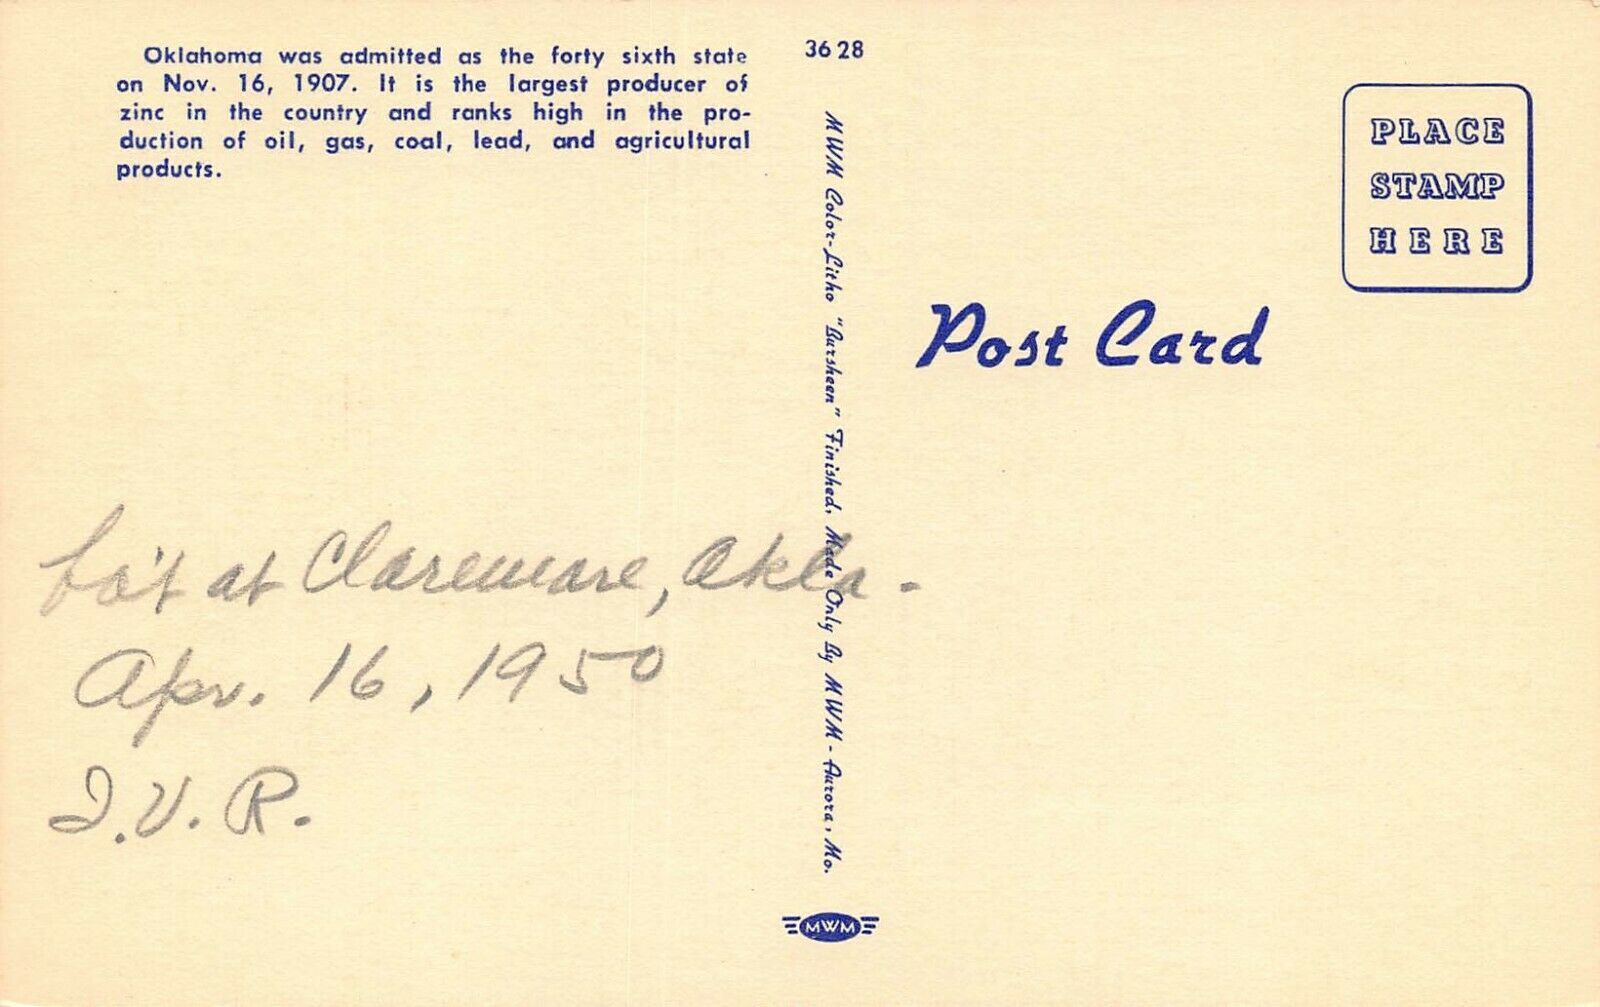 Oklahoma was admitted as the forty sixth state
on Nov. 16, 1907. It is the largest producer of
zinc in the country and ranks high in the pro-
duction of oil, gas, coal, lead, and agricultural
products.
3628
MWM Color-Litho "Bursheen" Finished, Made Only By MWM - Aurora, Mo.
PLACE
STAMP
HERE
Post Card
bo't at Claremore, Okla.
Apr. 16, 1950
I.V.R.
MWM